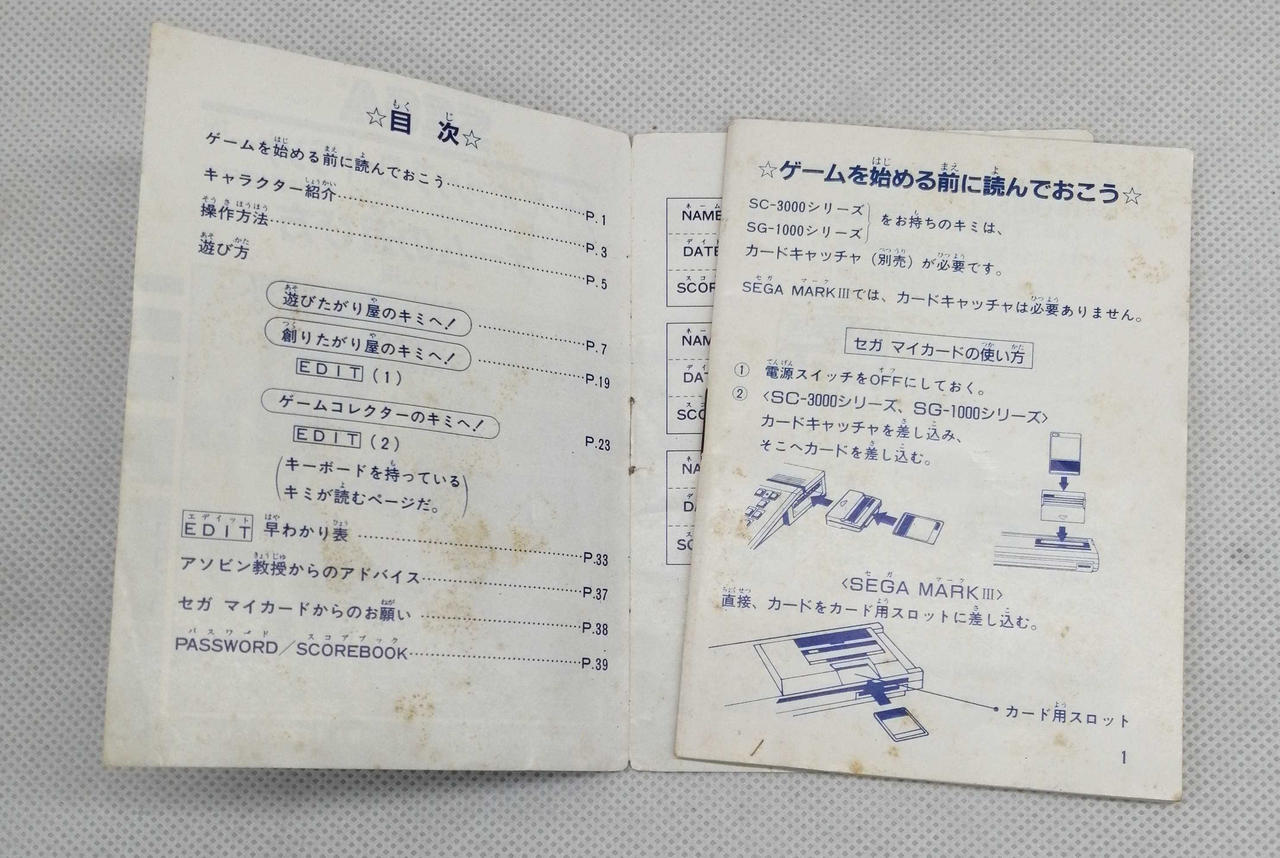 ☆目次☆
ゲームを始める前に読んでおこう……P.1
キャラクター紹介……P.3
操作方法……P.5
遊び方
遊びたがり屋のキミへ！……P.7
創りたがり屋のキミへ！……P.19
EDIT(1)
ゲームコレクターのキミへ！……P.23
EDIT(2)
(キーボードを持っている
キミが読むページだ。)
EDIT 早わかり表……P.33
アソビン教授からのアドバイス……P.37
セガ マイカードからのお願い……P.38
PASSWORD／SCOREBOOK……P.39
NAME
DATE
SCOR
NAM
DAT
SCO
NA
DA
SC
☆ゲームを始める前に読んでおこう☆
SC-3000シリーズ
SG-1000シリーズ}をお持ちのキミは、
カードキャッチャ(別売)が必要です。
SEGA MARKⅢでは、カードキャッチャは必要ありません。
セガ マイカードの使い方
① 電源スイッチをOFFにしておく。
② 〈SC-3000シリーズ、SG-1000シリーズ〉
カードキャッチャを差し込み、
そこへカードを差し込む。
〈SEGA MARKⅢ〉
直接、カードをカード用スロットに差し込む。
カード用スロット
1